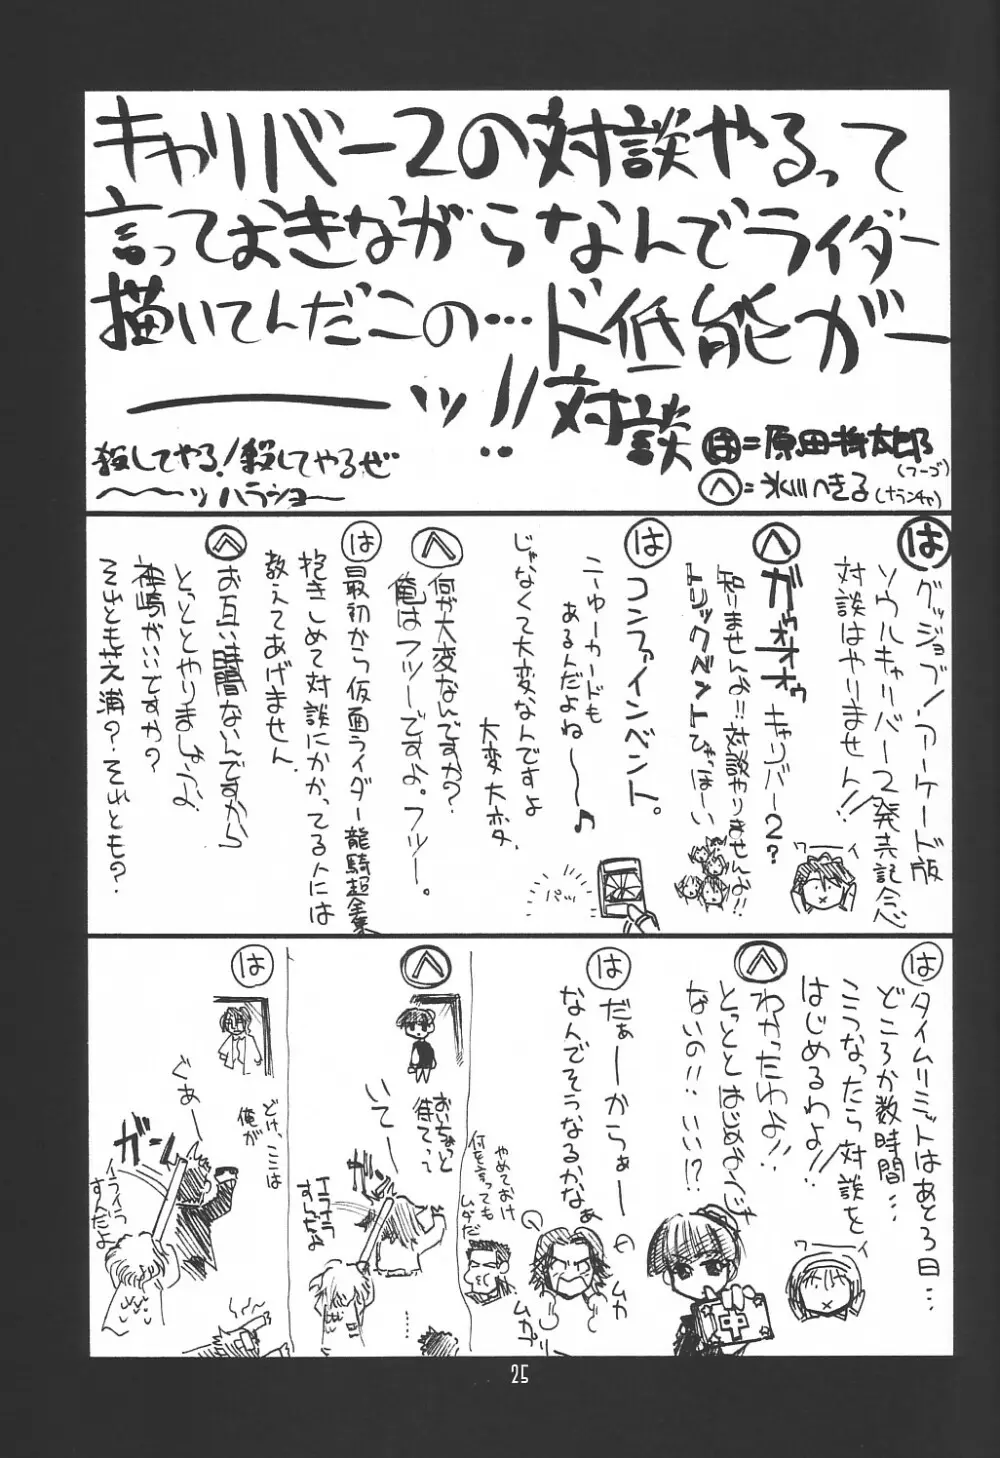 キャリバー2の対談やるって
言っておきながらなんでライダー
描いてんだこの…ド低能がー
━━━ッ!!
対談
殺してやる!殺してやるぜ
〜〜〜ッハラショー
は=原田将太郎
(フーゴ)
へ=氷川へきる(ナランチャ)
は
グッジョブ!アーケード版
ソウルキャリバー2発売記念
対談はやりません!!
へ
ガゥオオオゥ
キャリバー2?
知りませんよ!!対談やりませんよ!!
トリックベントびゃっほーい
ワーイ
は
コンファインベント。
ニューカードも
あるんだよね〜〜♪
じゃなくて大変なんですよ
大変大変
パッ
へ
何が大変なんですか?
俺はフツーですよ。フツー。
は
最初から仮面ライダー龍騎超全集
抱きしめて対談にかかってる人には
教えてあげません。
へ
お互い時間ないんですから
とっととやりましょうよ
神崎がいいですか?
それとも芝浦?それとも?
は
タイムリミットはあと3日…
どころか数時間…
こうなったら対談を
はじめるわよ!!
ワーイ
へ
わかったわよ!!
とっととはじめまイイ
ないの!!いい!?
中
は
だぁーからぁー
なんでそうなるかなぁ
ムカ
ムカッ
やめておけ
何を言っても
ムダだ
へ
おいちょっと
待てって
いてー
ガッ
イライラ
するなよ
は
どけ、ここは
俺が
ぐぁー
ガーン
イライラ
すんだよ
25